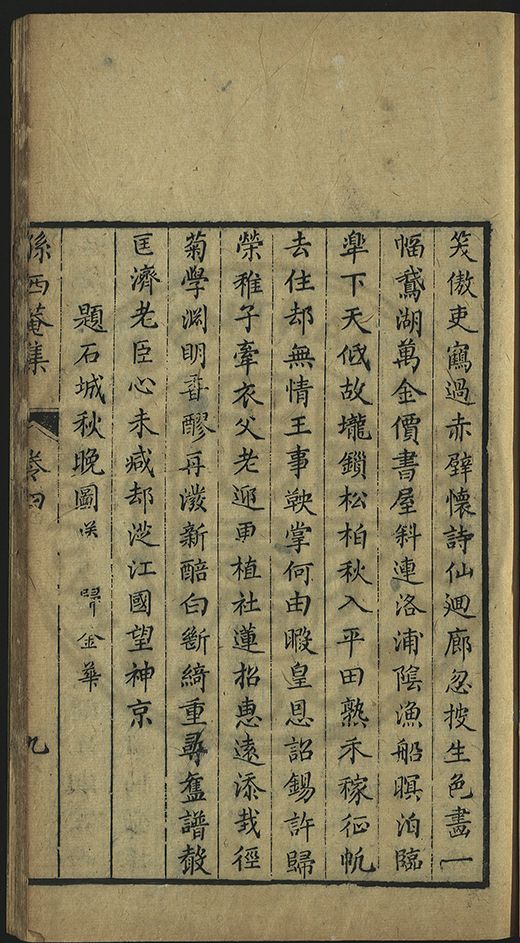 笑傲吏鶴過赤壁懷詩仙迴廊忽披生色畫一
幅鵞湖萬金價書屋斜連洛浦陰漁船暝泊臨
皐下天低故壠鎖松柏秋入平田熟禾稼征帆
去住却無情王事鞅掌何由暇皇恩詔錫許歸
榮稚子牽衣父老迎更植社蓮招惠遠添栽徑
菊學淵明香醪再潑新醅白斷綺重尋舊譜
匡濟老臣心未減却從江國望神京
題石城秋晚圖 金華
孫西菴集 卷四 九